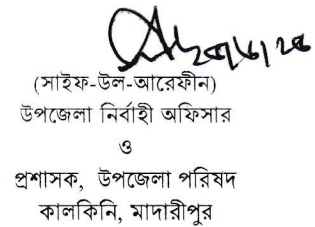 (সাইফ-উল-আরেফীন)
উপজেলা নির্বাহী অফিসার
ও
প্রশাসক, উপজেলা পরিষদ
কালকিনি, মাদারীপুর